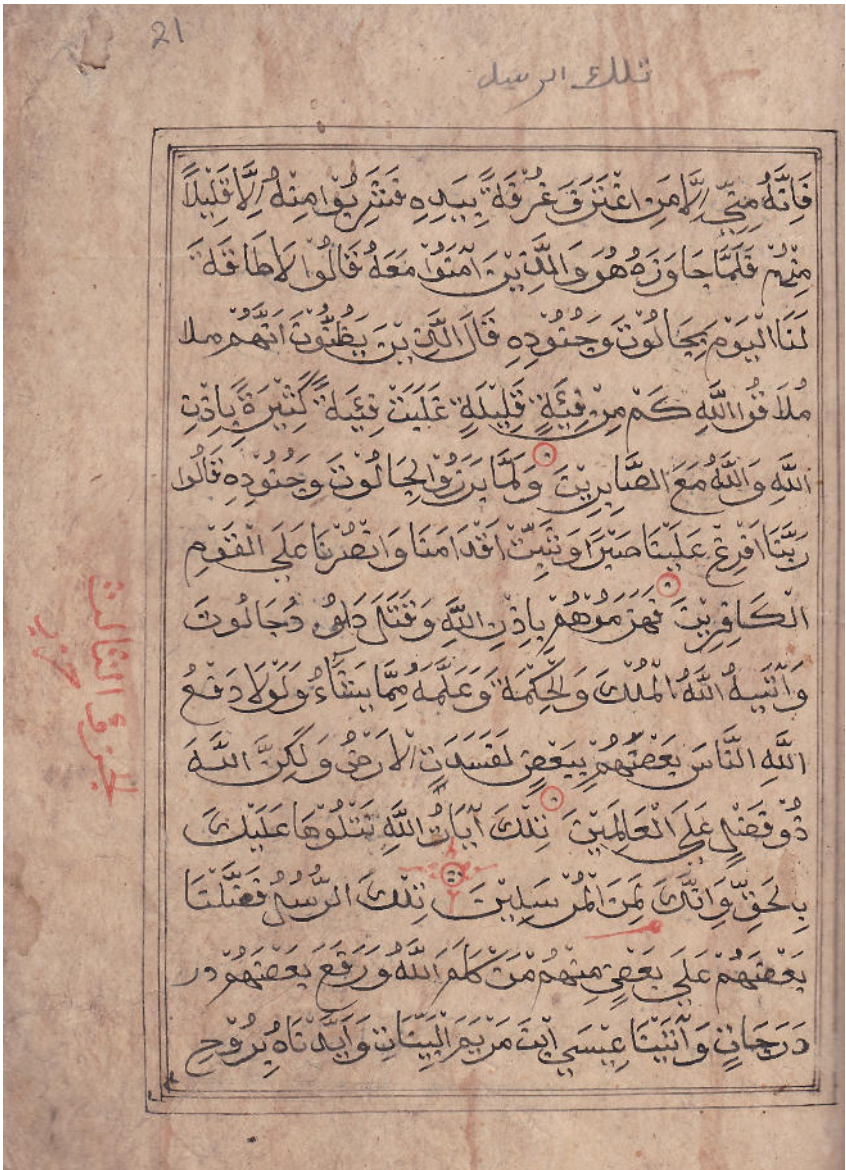 21
تلك الرسل
فَاِنَّهُ مِنِّي اِلَّا مَنِ اغْتَرَفَ غُرْفَةً بِيَدِهِ فَشَرِبُوْا مِنْهُ اِلَّا قَلِيْلًا
مِنْهُمْ فَلَمَّا جَاوَزَهُ هُوَ وَالَّذِيْنَ آمَنُوْا مَعَهُ قَالُوْا لَا طَاقَةَ
لَنَا الْيَوْمَ بِجَالُوْتَ وَجُنُوْدِهِ قَالَ الَّذِيْنَ يَظُنُّوْنَ اَنَّهُمْ ملا
مُلَاقُوْا اللَّهِ كَمْ مِنْ فِئَةٍ قَلِيْلَةٍ غَلَبَتْ فِئَةً كَثِيْرَةً بِاِذْنِ
اللَّهِ وَاللَّهُ مَعَ الصَّابِرِيْنَ وَلَمَّا بَرَزُوْا لِجَالُوْتَ وَجُنُوْدِهِ قَالُوْا
رَبَّنَا اَفْرِغْ عَلَيْنَا صَبْرًا وَثَبِّتْ اَقْدَامَنَا وَانْصُرْنَا عَلَي الْقَوْمِ
الْكَافِرِيْنَ فَهَزَمُوْهُمْ بِاِذْنِ اللَّهِ وَقَتَلَ دَاوُ دُجَالُوْتَ
وَآتَيهُ اللَّهُ الْمُلْكَ وَلْحِكْمَةَ وَعَلَّمَهُ مِمَّا يَشَآءُ وَلَوْلَا دَفْعُ
اللَّهِ النَّاسَ بَعْضَهُمْ بِبَعْضٍ لَفَسَدَتِ الْاَرْضُ وَلَكِنَّ اللَّهَ
ذُوْ فَضْلٍ عَلَي الْعَالَمِيْنَ تِلْكَ آيَاتُ اللَّهِ نَتْلُوْهَا عَلَيْكَ
بِلْحَقِّ وَاِنَّكَ لَمِنَ الْمُرْسَلِيْنَ تِلْكَ الرُّسُلُ فَضَّلْنَا
بَعْضَهُمْ عَلَي بَعْضٍ مِنْهُمْ مَنْ كَلَّمَ اللَّهُ وَرَفَعَ بَعْضَهُمْ در
دَرَجَاتٍ وَآتَيْنَا عِيْسَي ابْنَ مَرْيَمَ الْبَيِّنَاتِ وَاَيَّدْنَاهُ بِرُوْحِ
لجزؤ الثالث